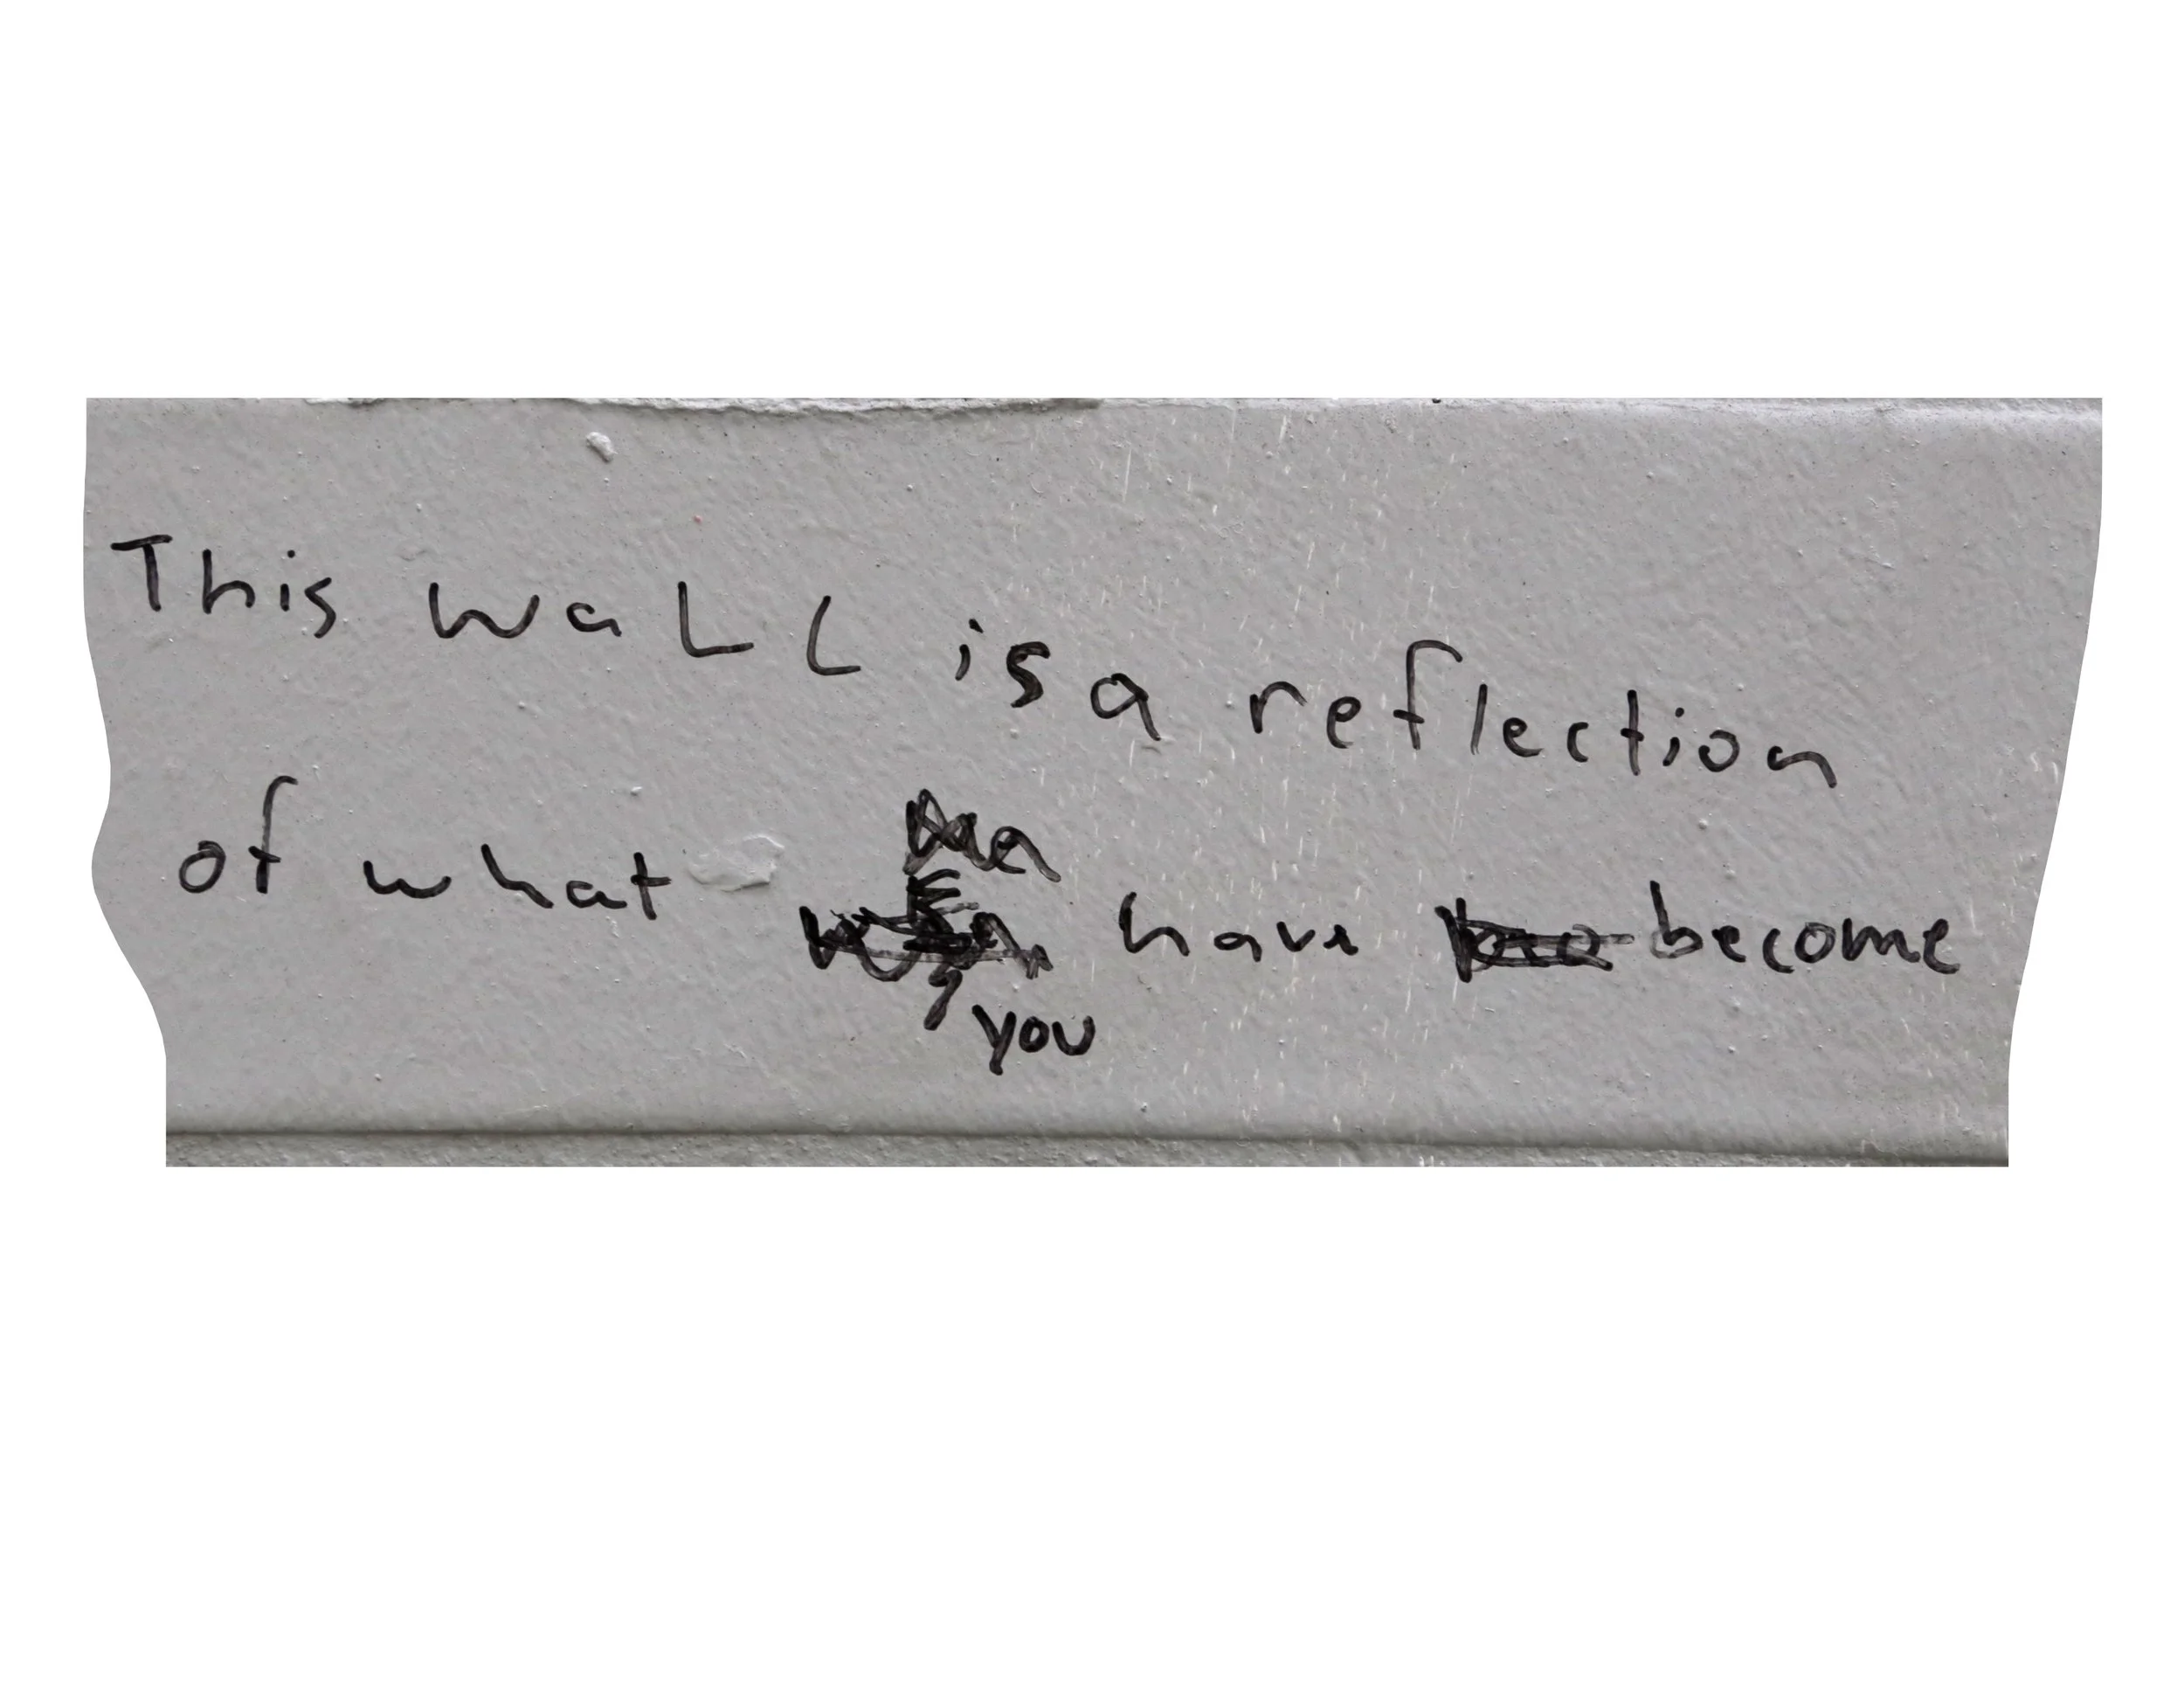 This waLL is a reflection
of what have become
you